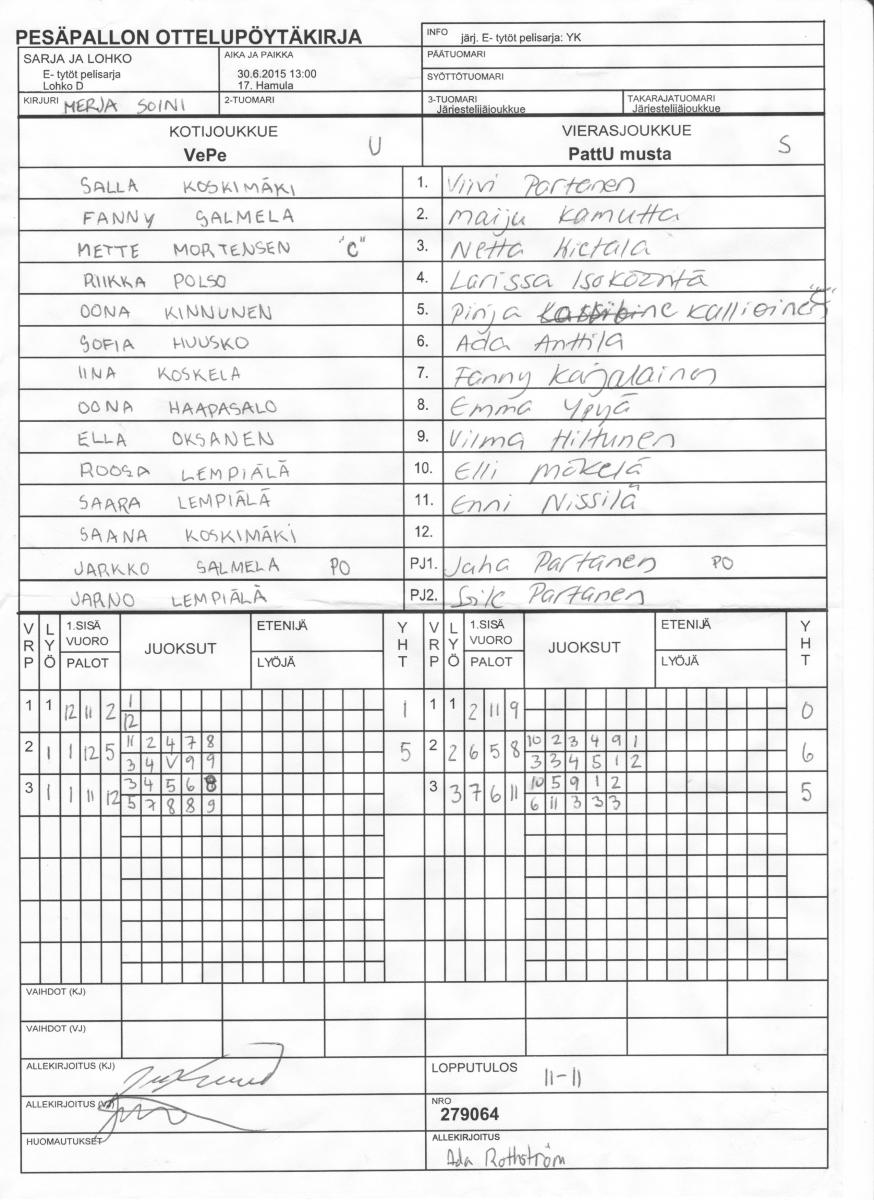 PESÄPALLON OTTELUPÖYTÄKIRJA
INFO järj. E- tytöt pelisarja: YK
SARJA JA LOHKO
E- tytöt pelisarja
Lohko D
AIKA JA PAIKKA
30.6.2015 13:00
17. Hamula
PÄÄTUOMARI
SYÖTTÖTUOMARI
KIRJURI MERJA SOINI
2-TUOMARI
3-TUOMARI
Järjestelijäjoukkue
TAKARAJATUOMARI
Järjestelijäjoukkue
KOTIJOUKKUE
VePe U
VIERASJOUKKUE
PattU musta S
SALLA KOSKIMÄKI 1. Viivi Partanen
FANNY SALMELA 2. Maiju Kamutta
METTE MORTENSEN "C" 3. Netta Hietala
RIIKKA POLSO 4. Larissa Isoköentä
OONA KINNUNEN 5. Pinja Kallioinen
SOFIA HUUSKO 6. Ada Anttila
IINA KOSKELA 7. Fanny Karjalainen
OONA HAAPASALO 8. Emma Ypyä
ELLA OKSANEN 9. Vilma Hiltunen
ROOSA LEMPIÄLÄ 10. Elli Mäkelä
SAARA LEMPIÄLÄ 11. Enni Nissilä
SAANA KOSKIMÄKI 12.
JARKKO SALMELA PO PJ1. Juha Partanen PO
JARNO LEMPIÄLÄ PJ2. Partanen
VRP LYÖ 1.SISÄ VUORO PALOT JUOKSUT ETENIJÄ LYÖJÄ YHT VRP LYÖ 1.SISÄ VUORO PALOT JUOKSUT ETENIJÄ LYÖJÄ YHT
1 1 12 11 2 1 1 1 1 2 11 9 0
12
2 1 1 12 5 11 2 4 7 8 5 2 2 6 5 8 10 2 3 4 9 1 6
3 4 V 9 9 3 3 4 5 1 2
3 1 1 11 12 3 4 5 6 8 3 3 7 6 11 10 5 9 1 2 5
5 7 8 8 9 6 11 3 3 3
VAIHDOT (KJ)
VAIHDOT (VJ)
ALLEKIRJOITUS (KJ)
LOPPUTULOS 11-11
ALLEKIRJOITUS (VJ)
NRO
279064
HUOMAUTUKSET
ALLEKIRJOITUS
Ada Rothström